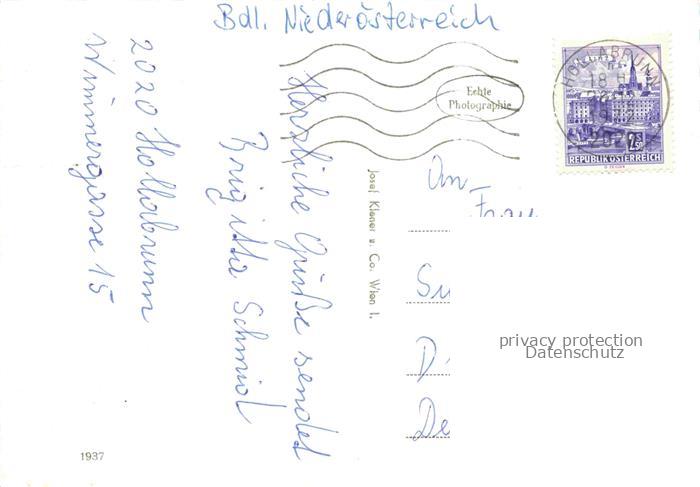 Bdl. Niederösterreich
2020 Hollabrunn
Winnergasse 15
Herzliche Grüße sendet
Brigitta Schmid
Echte
Photographie
Josef Klaner u. Co. Wien I.
HOLLABRUNN
18 H
2020
2S50
REPUBLIK ÖSTERREICH
An
Frau
Su
D
De
privacy protection
Datenschutz
1937